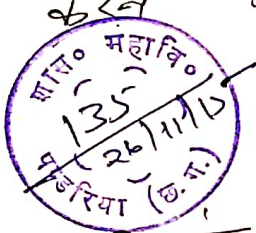 शास० महावि०
135
26/11/13
पंडरिया (छ.ग.)